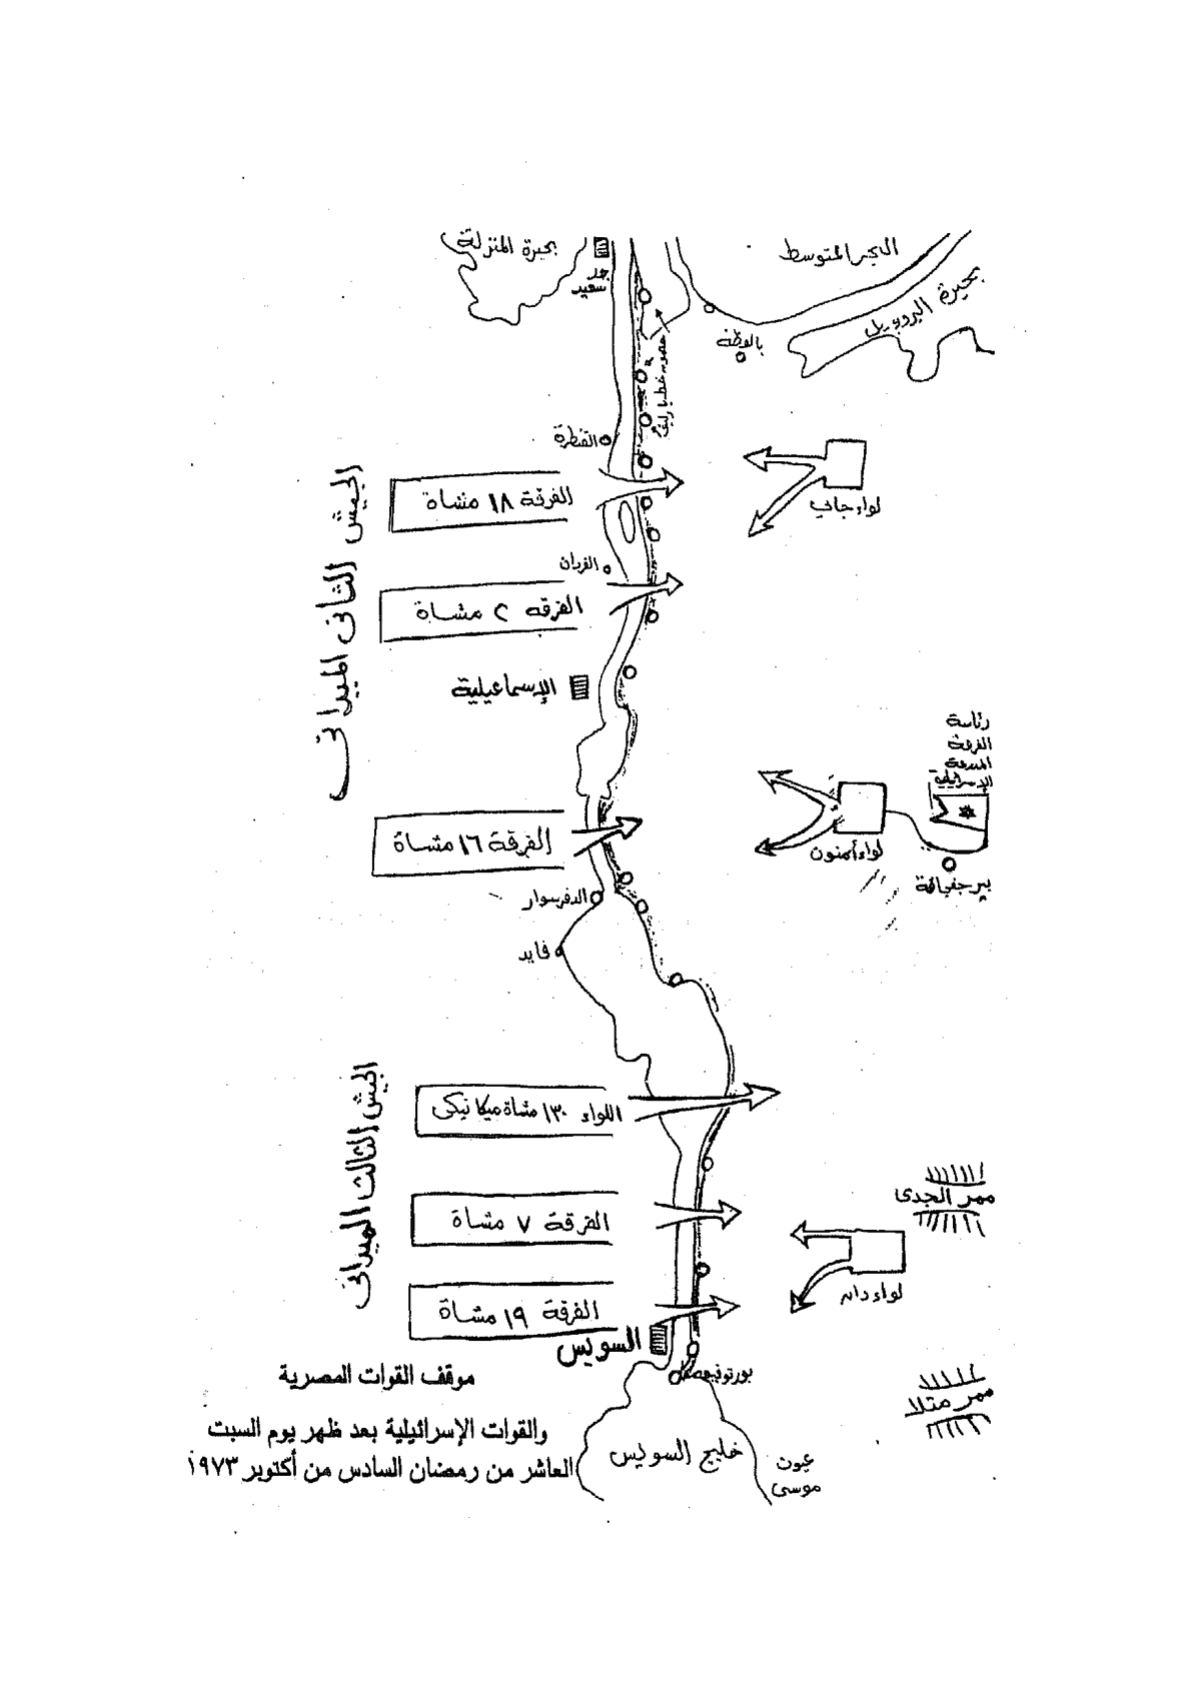 البحر المتوسط
بحيرة المنزلة
سعيد
بحيرة البردويل
بالوظة
حصون خط بارليف
القنطرة
الجيش الثانى الميدانى
الفرقة ١٨ مشاة
لواء جابي
الفردان
الفرقة ٢ مشاة
الإسماعيلية
رئاسة
الفرقة
المدرعة
الإسرائيلية
الفرقة ١٦ مشاة
لواء أمنون
بير جفجافة
الدفرسوار
فايد
الجيش الثالث الميدانى
اللواء ١٣٠ مشاة ميكانيكى
ممر الجدى
الفرقة ٧ مشاة
لواء دان
الفرقة ١٩ مشاة
السويس
بورتوفيق
ممر متلا
خليج السويس
عيون
موسى
موقف القوات المصرية
والقوات الإسرائيلية بعد ظهر يوم السبت
العاشر من رمضان السادس من أكتوبر ١٩٧٣